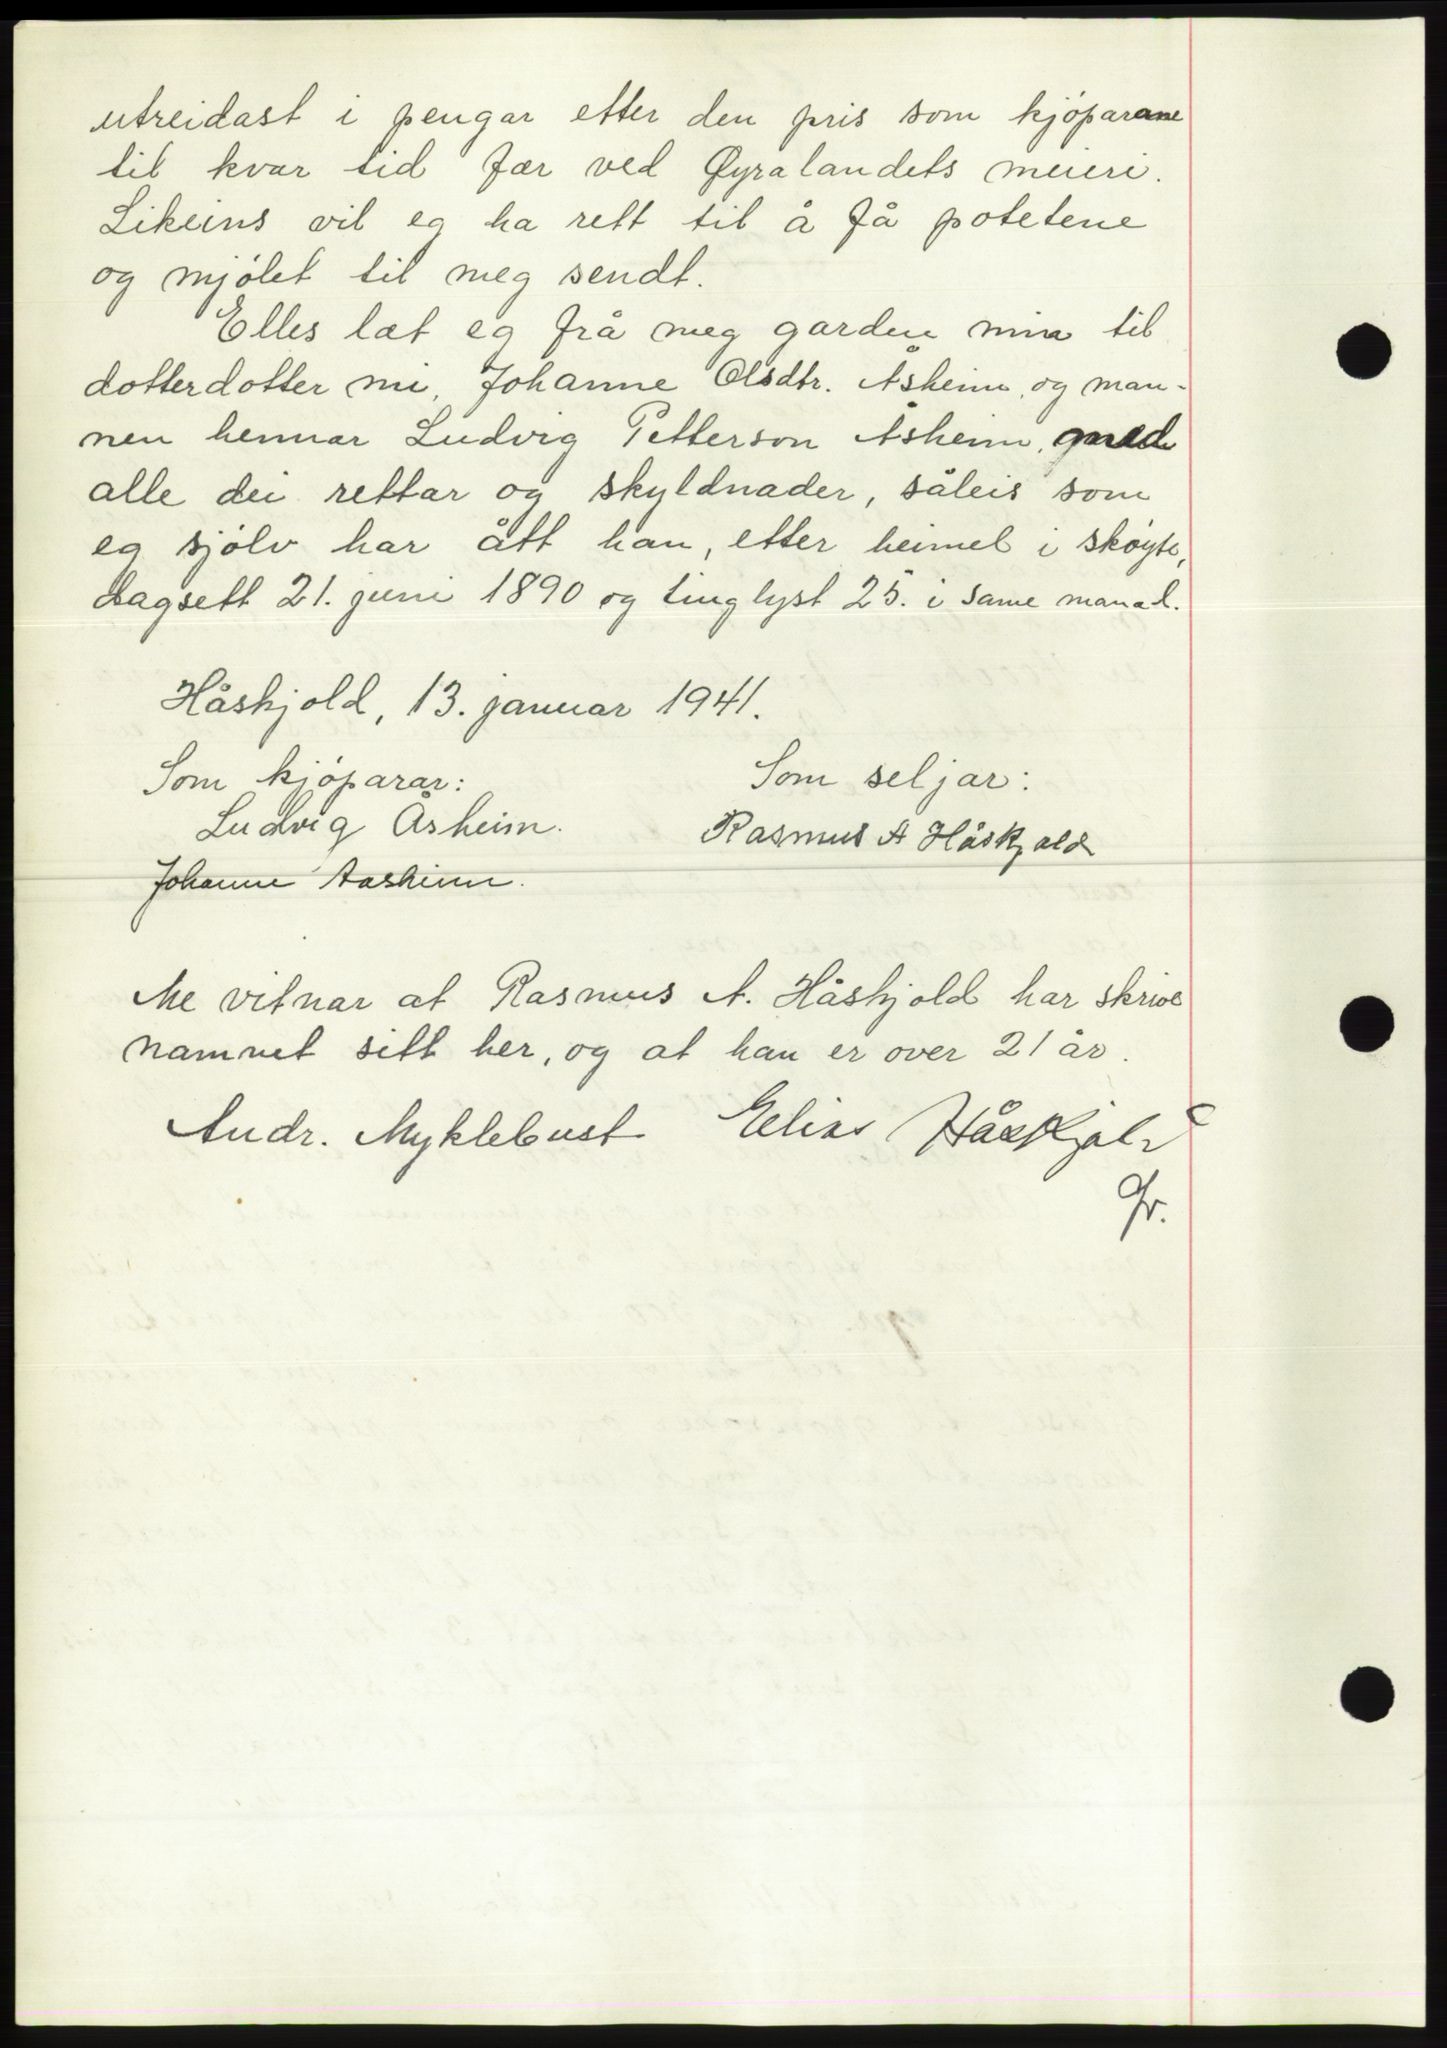 utreidast i pengar etter den pris som kjöparane
til kvar tid fær ved Øyralandets meieri.
Likeins vil eg ha rett til å få potetene
og mjölet til meg sendt.
Elles læt eg frå meg garden min til
dotterdotter mi, Johanne Olsdtr. Åsheim, og man-
nen hennar Ludvig Petterson Åsheim, med
alle dei rettar og skyldnader, såleis som
eg sjölv har ått han, etter heimel i sköyte,
dagsett 21. juni 1890 og tinglyst 25. i same manad.
Håskjold, 13. januar 1941.
Som kjöparar:
Som seljar:
Ludvig Åsheim.
Rasmus A Håskjold
Johanne Aasheim.
Me vitnar at Rasmus A. Håskjold har skrive
namnet sitt her, og at han er over 21 år.
Andr. Myklebust Elias Håskjold